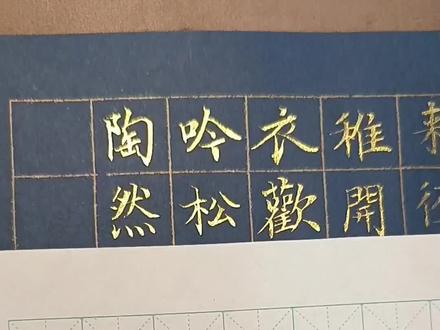 稚開
衣歡
吟松
陶然